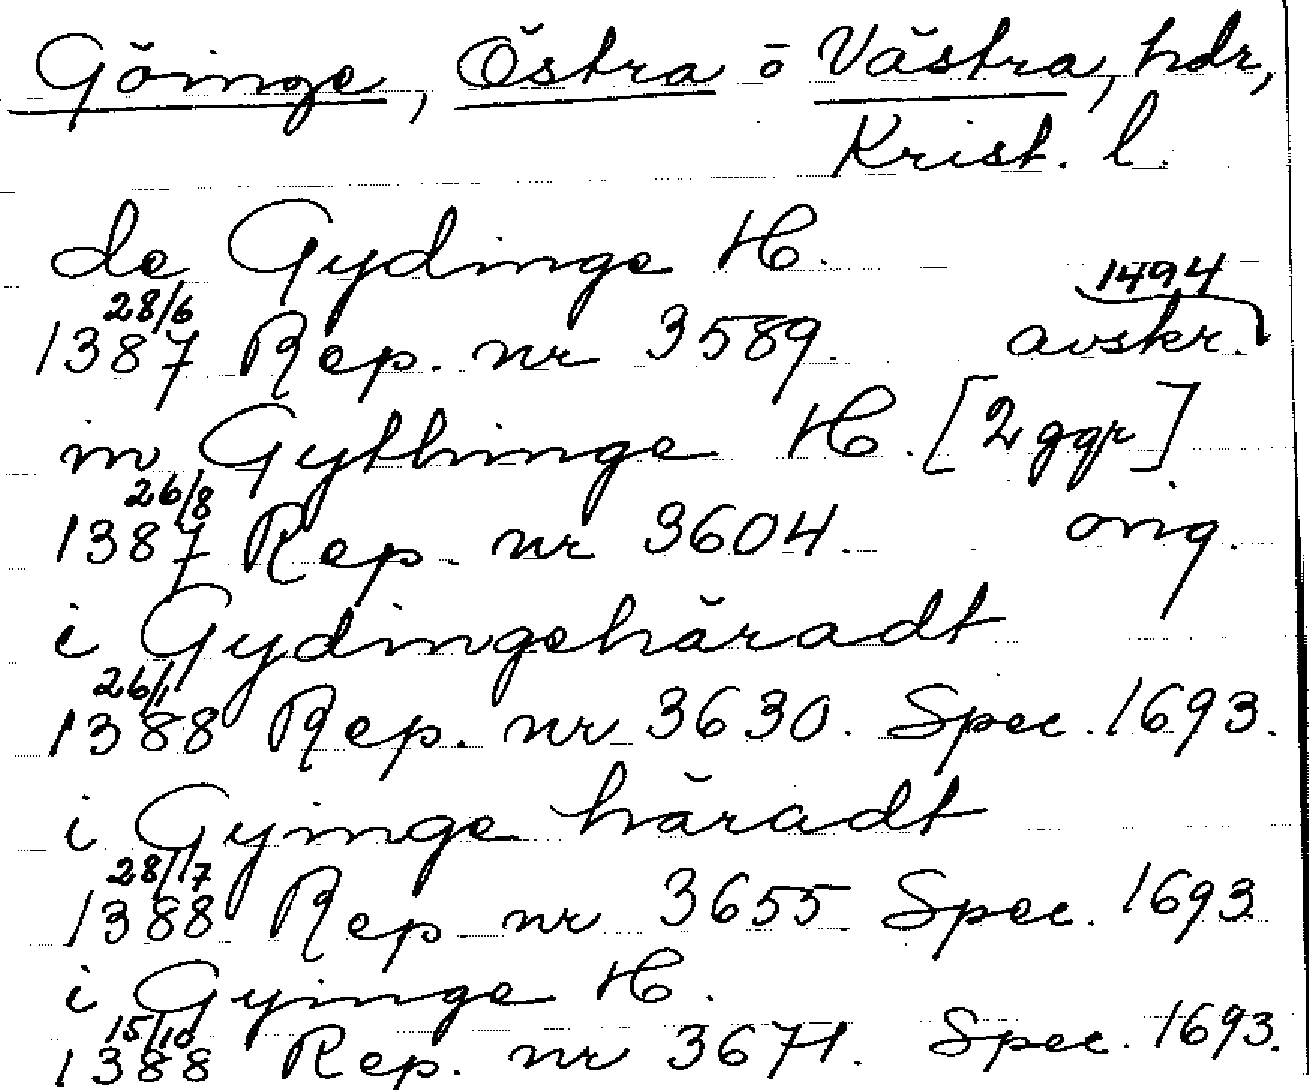 Göinge, Östra o Västra, hdr,
Krist. l.
de Gydinge H.
1387 28/6 Rep. nr 3589. avskr. 1494
in Gythinge H. [2 ggr]
1387 26/8 Rep. nr 3604. orig.
i Gydingehäradt
1388 26/1 Rep. nr 3630. Spec. 1693.
i Gyinge häradt
1388 28/7 Rep nr 3655 Spec. 1693
i Gyinge H.
1388 15/10 Rep. nr 3671. Spec. 1693.